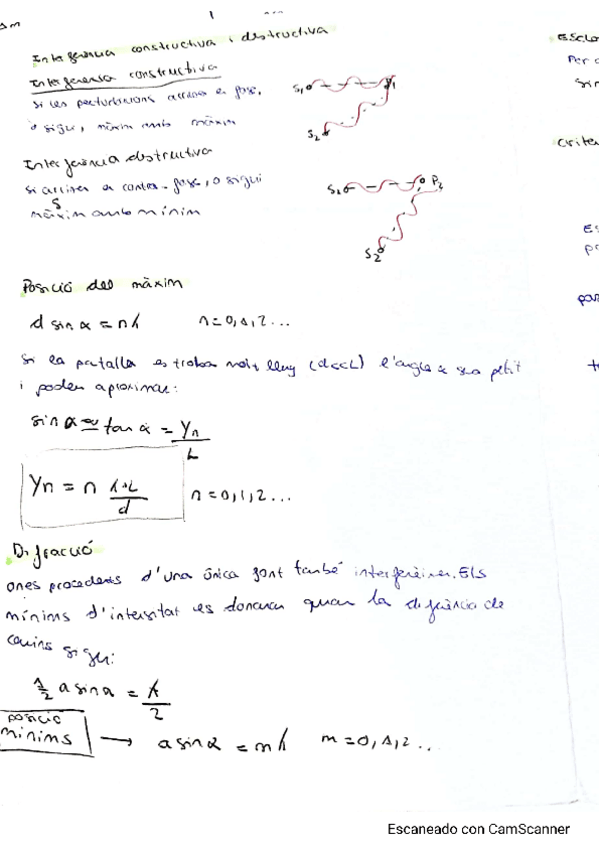 Interferència constructiva i destructiva
Interferència constructiva
si les perturbacions arriben en fase,
o sigui, màxim amb màxim
S₁ P₁
S₂
Interferència destructiva
si arriben en contra-fase, o sigui
màxim amb mínim
S₁ P₂
S₂
Posició del màxim
d sin α = nλ n=0,1,2...
Si la pantalla es troba molt lluny (d<<L) l'angle α serà petit
i podem aproximar:
sin α ≈ tan α = Yn/L
Yn = n λ·L/d n=0,1,2...
Difracció
ones procedents d'una única font també interfereixen. Els
mínims d'intensitat es donaran quan la diferència de
camins sigui:
1/2 a sin α = λ/2
posició
mínims → a sin α = mλ m=0,1,2..
Escaneado con CamScanner